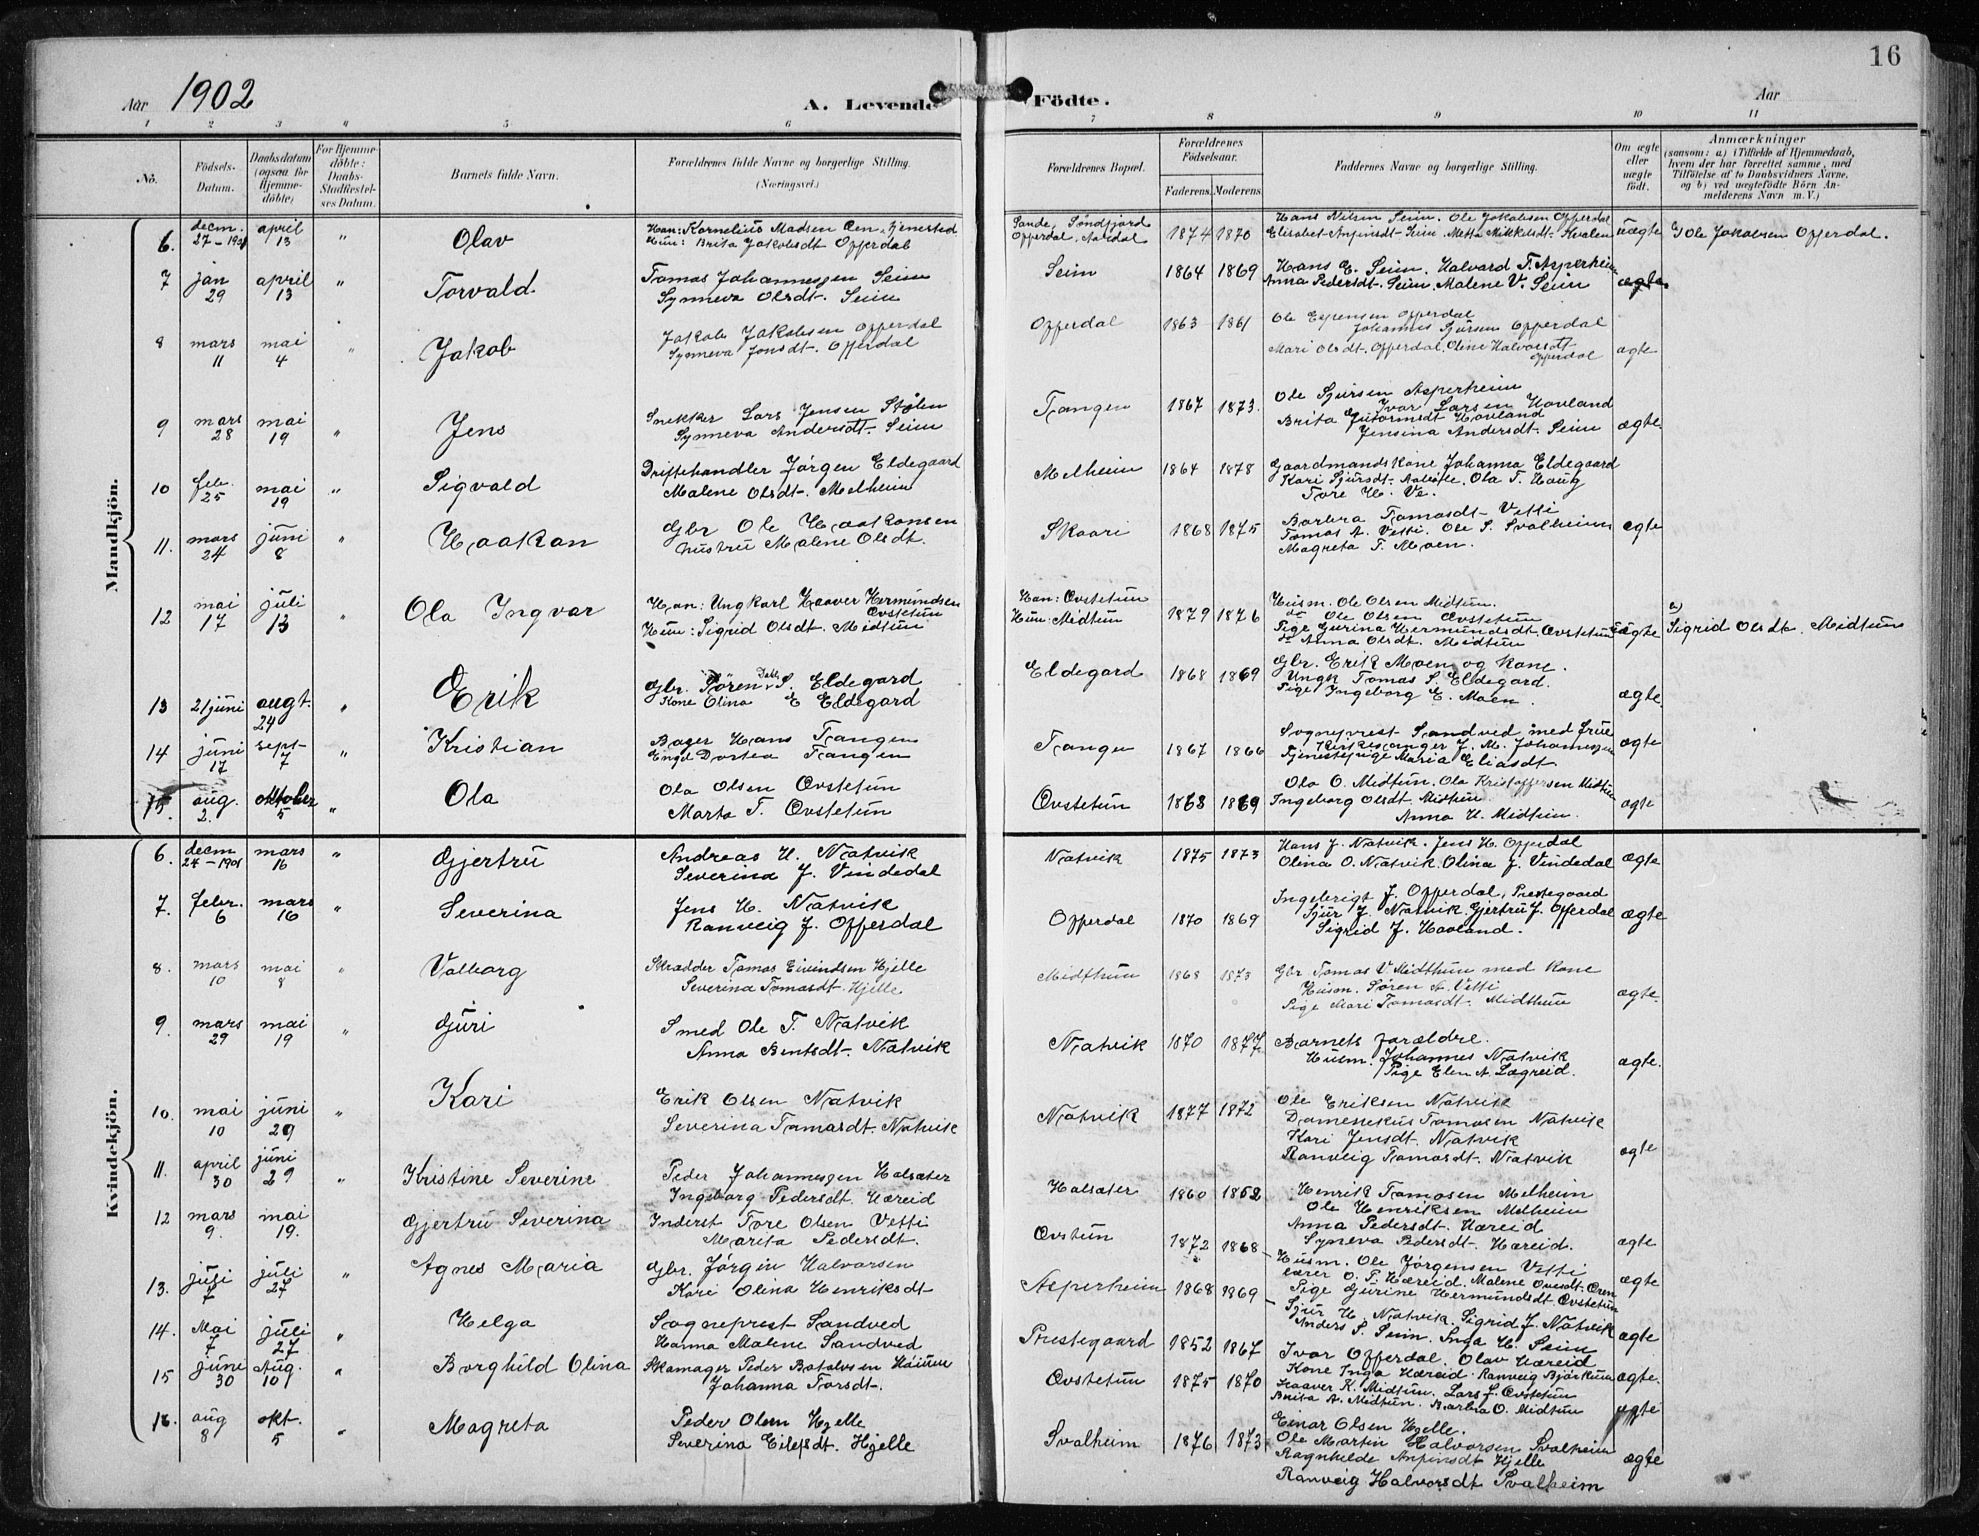 16
Aar 1902
A. Levende Fødte.
Aar
1 2 3 " 5 6 7 8 9 10 11
No.
Fødsels-Datum.
Daabsdatum (ogsaa for Hjemmedøbte)
For Hjemmedøbte: Daabs-Stadfæstelses Datum.
Barnets fulde Navn.
Forældrenes fulde Navne og borgerlige Stilling.
(Næringsvei.)
Forældrenes Bopæl.
Forældrenes Fødselsaar.
Faderens. Moderens.
Faddernes Navne og borgerlige Stilling.
Om ægte eller uægte født.
Anmærkninger
(saasom: a) i Tilfælde af Hjemmedaab, hvem der har forrettet samme, med Tilføielse af to Daabsvidners Navne. og b) ved uægtefødte Børn Anmelderens Navn m. V.)
Mandkjøn.
6. decm. 27-1901 april 13 " Olav Han: Kornelius Madsen Hun: Brita Jakobsdt Opperdal Sande, Søndfjord Opperdal, Aardal 1874 1870 Hans Nilsen Seim. Ole Jakobsen Opperdal Elisabet Anfinsdt Seim. Metta Mikkelsdt. Kvalen uægte Ole Jakobsen Opperdal.
7 jan 29 april 13 " Torvald Tomas Johannessen Seim Synneva Olsdt. Seim Seim 1864 1869 Hans E. Seim. Halvard T. Asperheim Anna Pedersdt. Seim. Malene V. Seim ægte
8 mars 11 mai 4 " Jakob Jakob Jakobsen Opperdal Synneva Jonsdt. Opperdal Opperdal 1863 1861 Ole Espensen Opperdal Johannes Sjursen Opperdal Mari Olsdt. Opperdal. Oline Halvorsdt Opperdal ægte
9 mars 28 mai 19 " Jens Snekker Lars Jensen Stølen Synneva Andersdt. Seim Tangen 1867 1873. Ole Sjursen Asperheim Ivar Larsen Hovland Brita Guttormsdt Hovland Jensina Andersdt. Seim ægte.
10 febr. 25 mai 19 " Sigvald Driftehandler Jørgen Eldegaard Malene Olsdt. Melheim Melheim 1864 1878 Gaardmandskone Johanna Eldegaard Kari Sjursdt. Ola T. Haug Tore H. Ve.
11. mars 24 juni 8 " Haakan Gbr Ole Haakansen hustru Malene Olsdt. Skaari 1868 1875 Barbra Tomasdt Vetti Tomas A. Vetti. Ole S. Svalheim Magreta T. Moen. ægte
12 mai 17 juli 13 " Ola Ingvar Han: Ungkarl Haaver Hermundsen Øvstetun Hun: Sigrid Olsdt. Midtun Han: Øvstetun Hun: Midtun 1879 1876 Husm. Ole Olsen Midtun. do Ole Olsen Øvstetun Pige Gurina Hermundsdt. Øvstetun do Anna Olsdt. Midtun uægte Sigrid Olsdt. Midtun
13 21 juni augt. 24 " Erik Gbr. Søren S. Eldegard Kone Olina E Eldegard Eldegard 1868 1869 Gbr. Erik Moen og Kone. Ungk Tomas S. Eldegard. Pige Ingeborg E. Moen. ægte.
14 juni 17 sept- 7 " Kristian Bager Hans Tangen Dortea Tangen Tangen 1867 1866 Sogneprest Sandved med frue Kirkesanger J. M. Johannessen Tjenestepige Maria Eliasdt ægte
15. aug. 2. oktober 5 " Ola Ola Olsen Øvstetun Marta T. Øvstetun Øvstetun 1868 1869 Ola O. Midtun. Ola Kristoffersen Midtun Ingeborg Olsdt. Midtun Anna H. Midtun. ægte
Kvindekjøn.
6. decm 24-1901 mars 16 " Gjertru Andreas H. Natvik Severina J. Vindedal Natvik 1875 1873 Hans J. Natvik. Jens H. Opperdal Olina O. Natvik. Olina J. Vindedal ægte
7. febr. 6 mars 16 " Severina Jens H. Natvik Ranveig J. Opperdal Opperdal 1870 1869 Ingebrigt J. Opperdal, Prestegaard Sjur J. Natvik. Gjertru J. Opperdal Sigrid J. Hovland. ægte
8. mars 10 mai 8 " Valborg Skrædder Tomas Eivindsen Hjelle Severina Tomasdt. Hjelle Midthun 1868 1873 Gbr Tomas V. Midthun med Kone Husm. Søren A. Vetti Pige Mari Tomasdt. Midthun ægte.
9. mars 29 mai 19 " Guri Smed Ole T. Natvik Anna Bentsdt. Natvik Natvik 1870 1877. Barnets forældre. Husm. Johannes Natvik Pige Elen A. Lægreid. ægte.
10. mai 10 juni 29 " Kari Erik Olsen Natvik Severina Tomasdt. Natvik Natvik 1877 1872 Ole Eriksen Natvik Domenekus Tomasen Natvik Kari Jensdt. Natvik Ranveig Tomasdt. Natvik ægte
11. april 30 juni 29 " Kristine Severine Peder Johannessen Halsæter Ingeborg Pedersdt. Hæreid Halsæter 1860 1852 Henrik Tomasen Melheim Ole Henriksen Melheim Anna Pedersdt. Hæreid Syneva Pedersdt. Hæreid. ægte
12 mars 9. mai 19. Gjertru Severina Inderst Tore Olsen Vetti Marita Pedersdt. Øvstun 1872 1868 Husm. Ole Jørgensen Vetti Lærer O. T. Hæreid. Malene Pige Gurine Hermundsdt Øvstetun ægte
13. juli 7 juli 27 " Agnes Maria Gbr. Jørgin Halvorsen Kari Olina Henriksdt Asperheim 1868 1869 Sjur H. Natvik. Sigrid J. Natvik Anders S. Seim. Inga H. Seim ægte
14. Mai 7 juli 27 " Helga Sogneprest Sandved Hanna Malene Sandved Prestegaard 1852 1867 Ivar Opperdal. Olav Hæreid Kone Inga Hæreid. Ranveig Bjørkum ægte.
15 june 30 Aug. 10 " Borghild Olina Skomager Peder Johanna Torsdt. Øvstetun 1875 1870 Haaver K. Midtun. Lars J. Øvstetun Brita A. Midtun. Barbra O. Midtun ægte
16. aug 8 okt. 5 " Magreta Peder Olsen Hjelle Severina Eilefsdt. Hjelle Svalheim 1876 1873 Einar Olsen Hjelle. Ole Martin Halvorsen Svalheim Ragnhilde Anfinsdt Hjelle Ranveig Halvorsdt Svalheim ægte